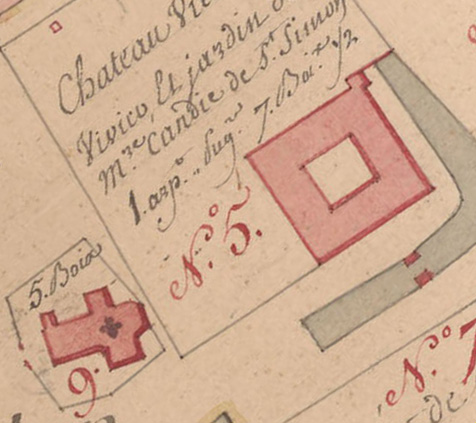 Chateau
Vivico, Et jardin
Mre. Candie de St. Simon
1. arp. 7. Boix. 1/2
N.° 5.
5. Boix
9.
N.° 7
de